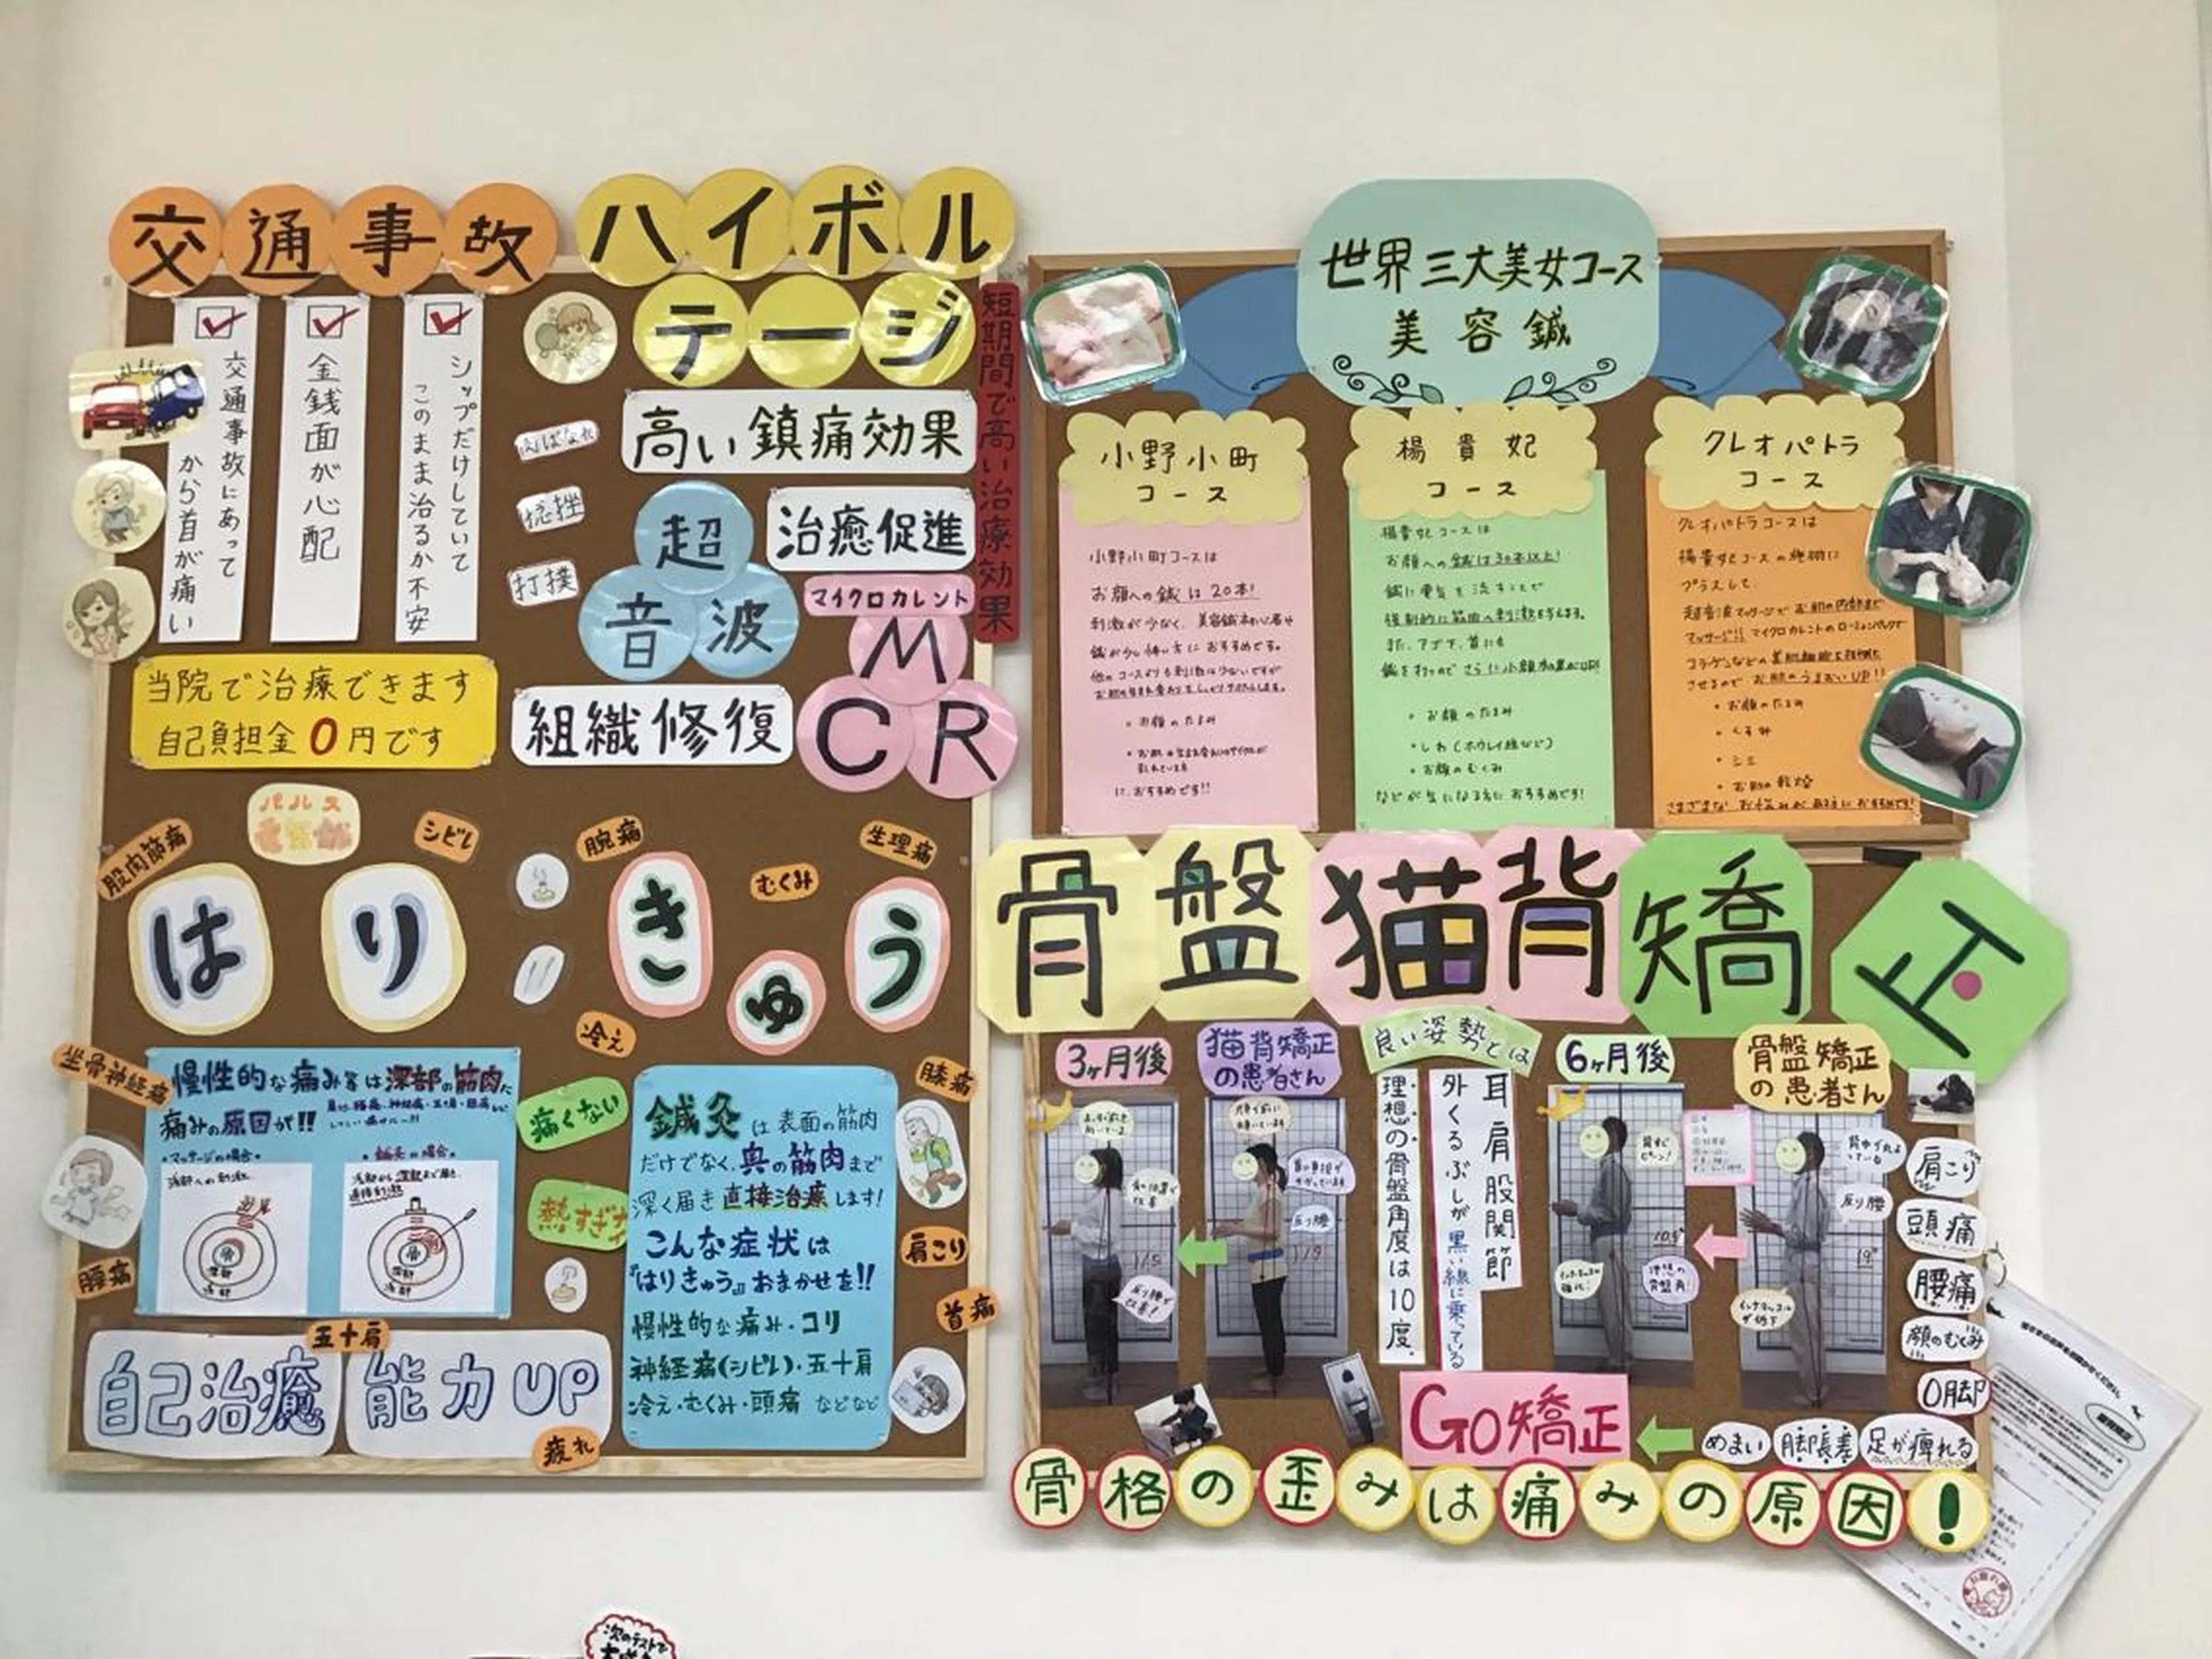 交通事故
交通事故にあって
から首が痛い
金銭面が心配
シップだけしていて
このまま治るか不安
当院で治療できます
自己負担金0円です
ハイボル
テージ
高い鎮痛効果
短期間で高い治療効果
捻挫
打撲
超
音波
治癒促進
マイクロカレント
MCR
組織修復
パルス
シビレ
股関節痛
腕痛
むくみ
生理痛
はり
きゅう
冷え
坐骨神経痛
慢性的な痛み等は深部の筋肉に
痛みの原因が!!
・マッサージの場合・
浅部への刺激
骨
深部
浅部
・鍼灸の場合・
浅部から深部まで届く
直接刺激
骨
深部
浅部
痛くない
腰痛
五十肩
自己治癒
能力UP
疲れ
膝痛
鍼灸は表面の筋肉
だけでなく、奥の筋肉まで
深く届き直接治療します!
こんな症状は
『はりきゅう』おまかせを!!
慢性的な痛み・コリ
神経痛(シビレ)・五十肩
冷え・むくみ・頭痛 などなど
肩こり
首痛
世界三大美女コース
美容鍼
小野小町
コース
小野小町コースは
お顔への鍼は20本!
刺激が少なく、美容鍼初心者や
鍼が少し怖い方におすすめです。
他のコースよりも刺激は少ないですが
・お顔のたるみ
におすすめです!!
楊貴妃
コース
楊貴妃コースは
お顔への鍼は30本以上!
鍼に電気を流すことで
強制的に筋肉へ刺激を与えます。
また、アゴ下、首にも
鍼を打つのでさらに小顔効果がUP!
・お顔のたるみ
・しわ(ホウレイ線など)
・お顔のむくみ
などが気になる方におすすめです!
クレオパトラ
コース
クレオパトラコースは
楊貴妃コースの施術に
プラスして、
超音波マッサージでお肌の内部まで
マッサージ!!マイクロカレントのローションパックで
させるのでお肌のうるおいUP!!
・お顔のたるみ
・くすみ
・シミ
・お肌の乾燥
さまざまなお悩みがある方におすすめです!
骨盤猫背矯正
3ヶ月後
猫背矯正
の患者さん
反り腰
反り腰が
改善!
良い姿勢とは
耳 肩 股関節
外くるぶしが黒い線に乗っている
理想の骨盤角度は10度.
6ヶ月後
骨盤矯正
の患者さん
背中が丸まっ
ている
反り腰
理想の
骨盤角!
19°
肩こり
頭痛
腰痛
顔のむくみ
O脚
めまい
脚長差
足が痺れる
GO矯正
骨格の歪みは痛みの原因!
次のテストで